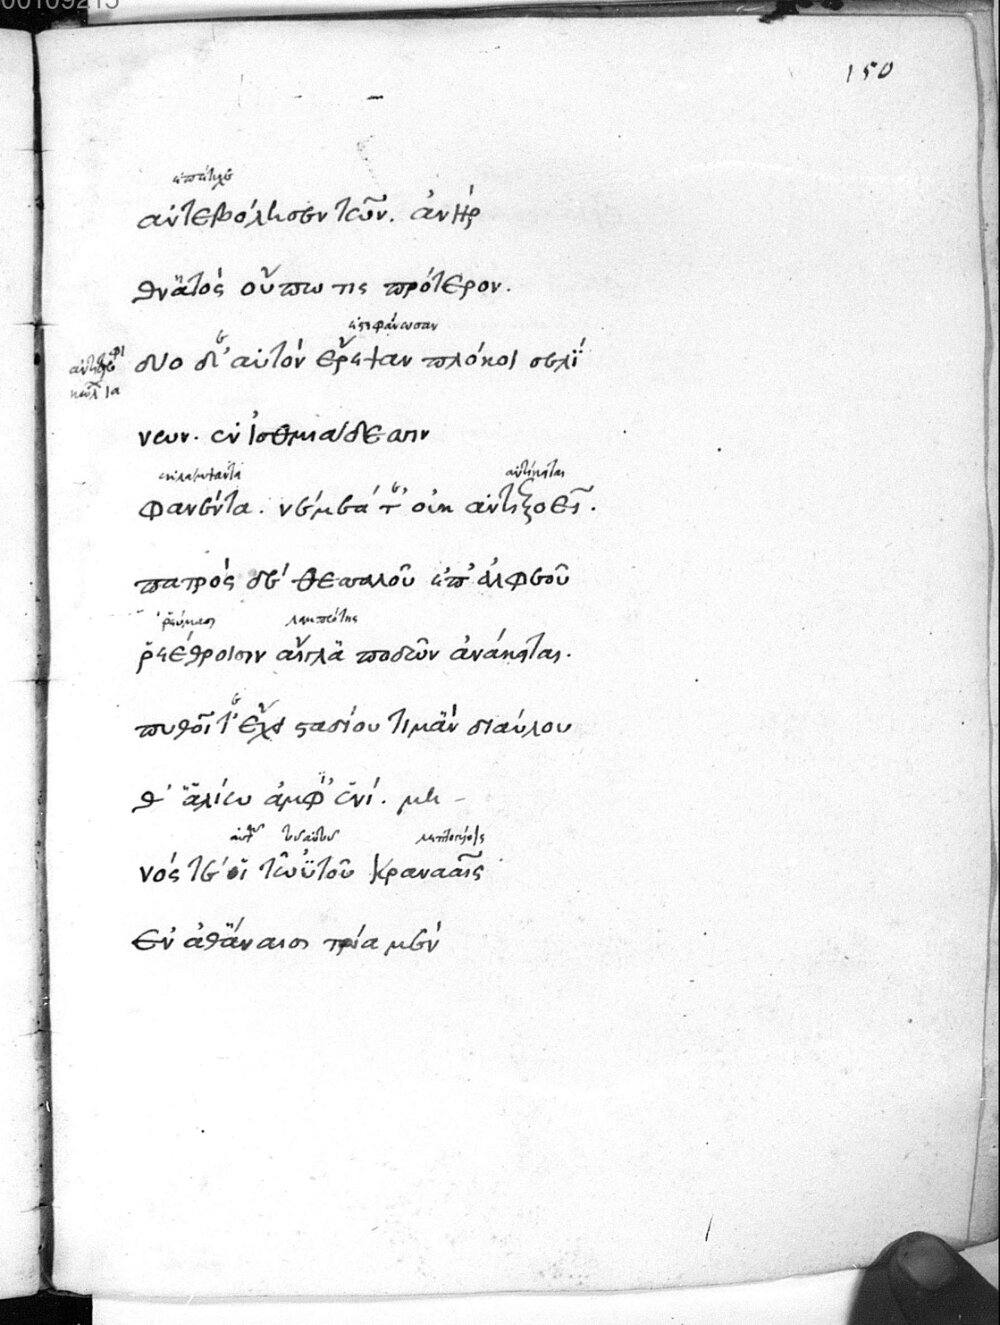 00109215
150
ἐπέτυχε
ἀντεβόλησεν τῶν. ἀνὴρ
θνατὸς οὔπω τις πρότερον.
ἐστεφάνωσαν
δύο δ' αὐτὸν ἔρεψαν πλόκοι σελί
νων. ἐν ἰσθμιάδεσσιν
φανέντα. νέμεά τ' οὐκ ἀντιξοεῖ.
πατρὸς δὲ θεσσαλοῦ ἐπ' ἀλφεοῦ
ῥεύμασι
ῥεέθροισιν αἴγλα ποδῶν ἀνάκειται.
πυθοῖ τ' ἔχει σταδίου τιμὰν διαύλου
θ' ἁλίῳ ἀμφ' ἑνί. μη
νός τέ οἱ τωὐτοῦ κρανααῖς
ἐν ἀθάναισι τρία μὲν